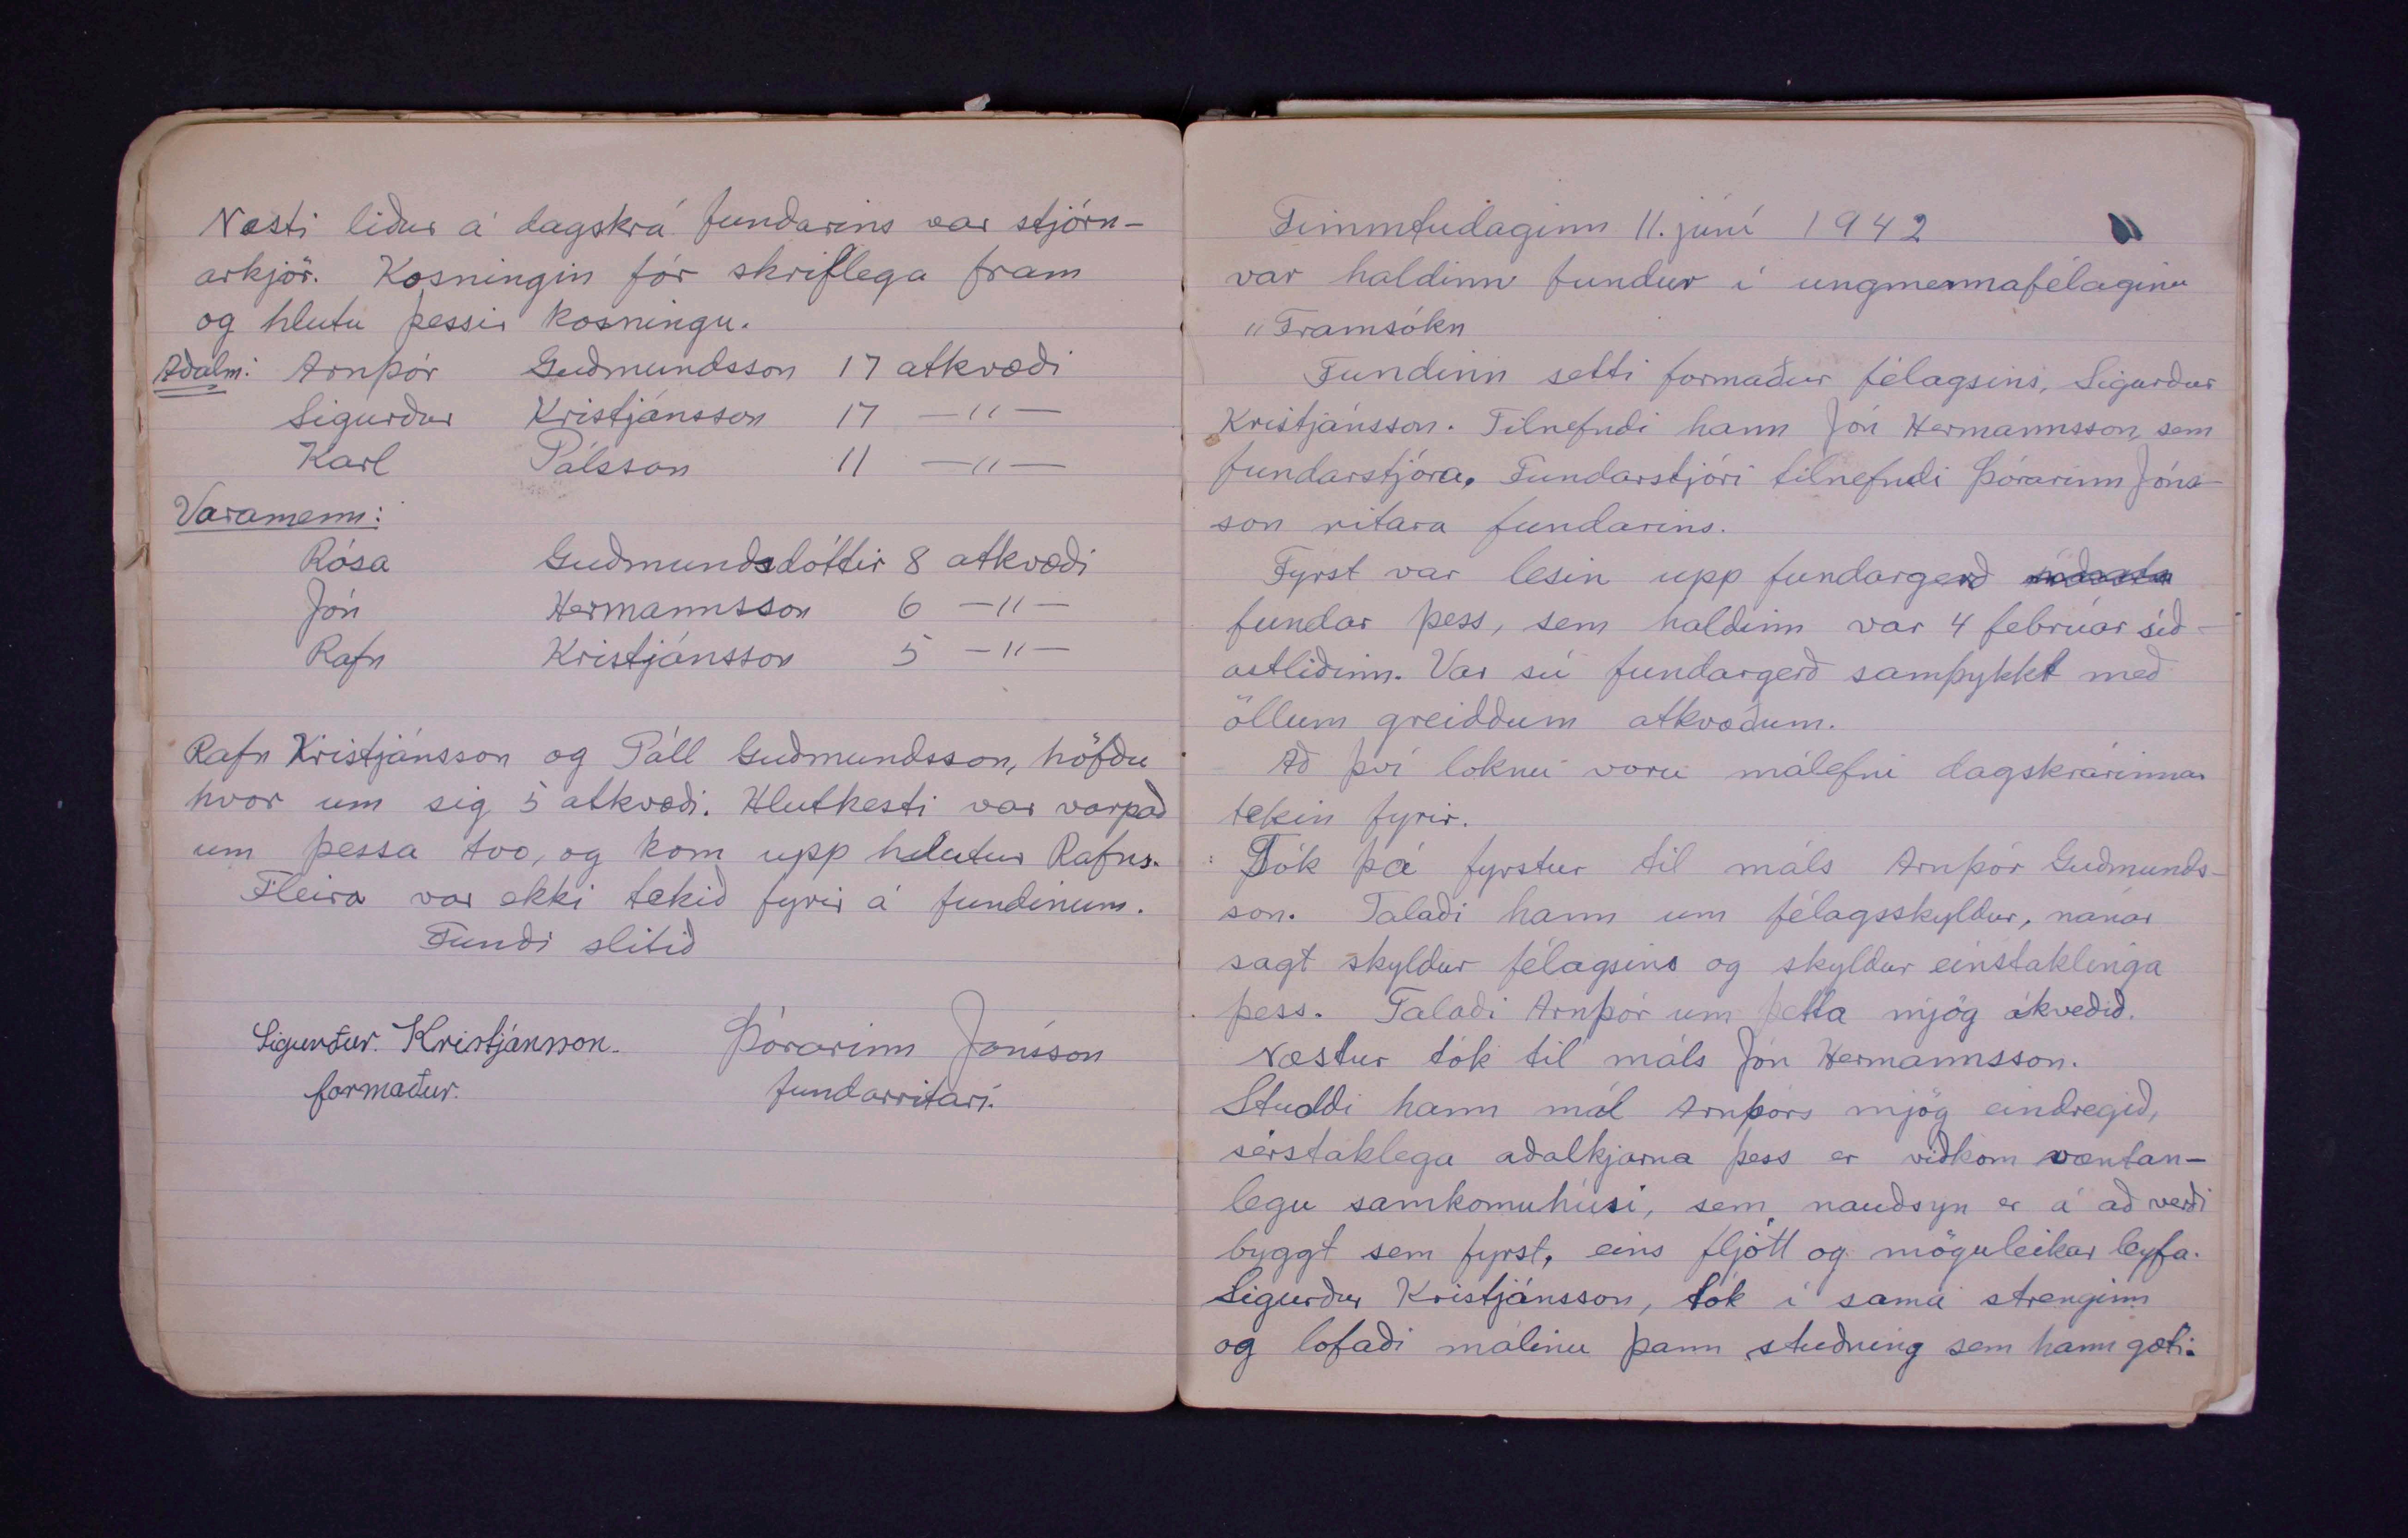 Næsti liður á dagskrá fundarins var stjórn-
arkjör. Kosningin fór skriflega fram
og hlutu þessir kosningu.
Aðalm: Arnþór Guðmundsson 17 atkvæði
Sigurður Kristjánsson 17 —〃—
Karl Pálsson 11 —〃—
Varamenn:
Rósa Guðmundsdóttir 8 atkvæði
Jón Hermannsson 6 —〃—
Rafn Kristjánsson 5 —〃—
Rafn Kristjánsson og Páll Guðmundsson, höfðu
hvor um sig 5 atkvæði. Hlutkesti var varpað
um þessa tvo, og kom upp hlutur Rafns.
Fleira var ekki tekið fyrir á fundinum.
Fundi slitið
Sigurður Kristjánsson. Þórarinn Jónsson
formaður. fundarritari.
Fimmtudaginn 11. júní 1942
var haldinn fundur í ungmennafélaginu
„Framsókn
Fundinn setti formaður félagsins, Sigurður
Kristjánsson. Tilnefndi hann Jón Hermannsson, sem
fundarstjóra. Fundarstjóri tilnefndi Þórarinn Jóns-
son ritara fundarins.
Fyrst var lesin upp fundargerð
fundar þess, sem haldinn var 4 febrúar síð-
astliðinn. Var sú fundargerð samþykkt með
öllum greiddum atkvæðum.
Að því loknu voru málefni dagskrárinnar
tekin fyrir.
Tók þá fyrstur til máls Arnþór Guðmunds-
son. Talaði hann um félagsskyldur, nánar
sagt skyldur félagsins og skyldur einstaklinga
þess. Talaði Arnþór um þetta mjög ákveðið.
Næstur tók til máls Jón Hermannsson.
Studdi hann mál Arnþórs mjög eindregið,
sérstaklega aðalkjarna þess er viðkom væntan-
legu samkomuhúsi, sem nauðsyn er á að verði
byggt sem fyrst, eins fljótt og möguleikar leyfa.
Sigurður Kristjánsson, tók í sama strenginn
og lofaði málinu þann stuðning sem hann gæti.